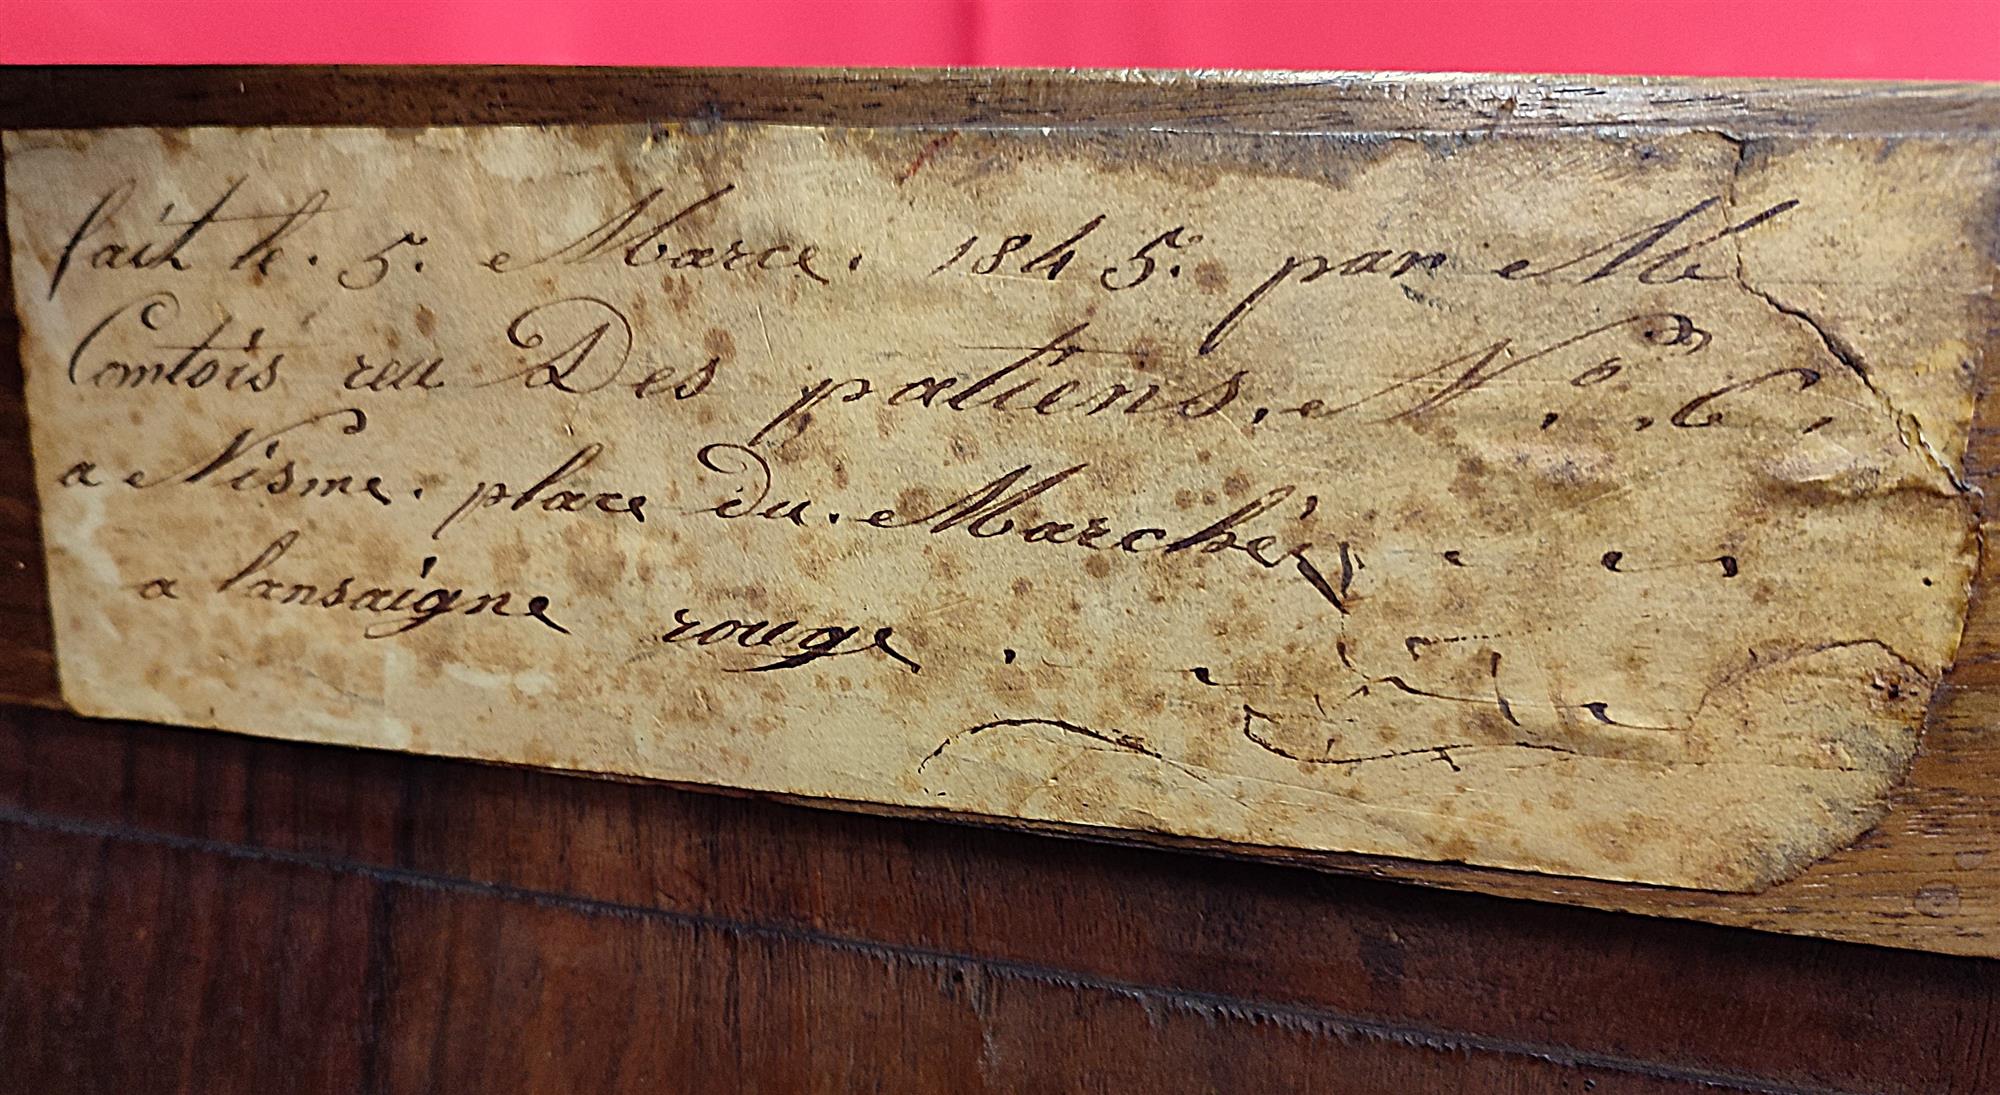 fait le. 5. Marce. 1845. par M
Comtois reu Des patiens. N.º 6.
a Nisme. place du. Marché
a lansaigne rouge.